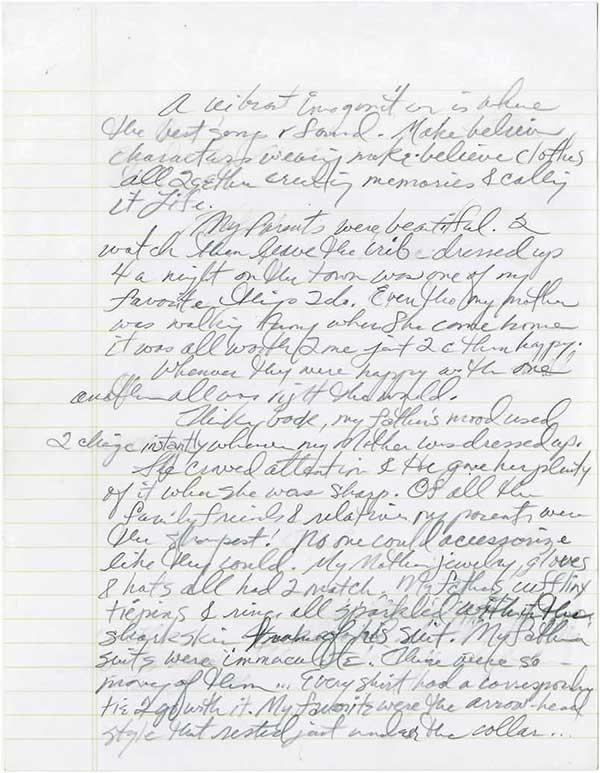 A vibrant imagination is where
the best songs r found. Make believe
characters wearing make-believe clothes
all 2gether creating memories & calling
it Life.
My parents were beautiful. 2
watch them leave the crib dressed up
4 a night on the town was one of my
favorite things 2 do. Even tho my mother
was walking funny when she came home
it was all worth 2 me just 2 c them happy.
Whenever they were happy with one
another all was right the world.
Thinking back, my father's mood used
2 change instantly whenever my mother was dressed up.
She craved attention & He gave her plenty
of it when she was sharp. Of all the
family friends & relatives my parents were
the sharpest! No one could accessorize
like they could. My Mother's jewelry, gloves
& hats all had 2 match. My father's cufflinx
tiepins & rings all sparkled within the
sharkskin of his suit. My father's
suits were immaculate. There were so
many of them... Every shirt had a corresponding
tie 2 go with it. My favorite were the arrow-head
style that rested just under the collar...